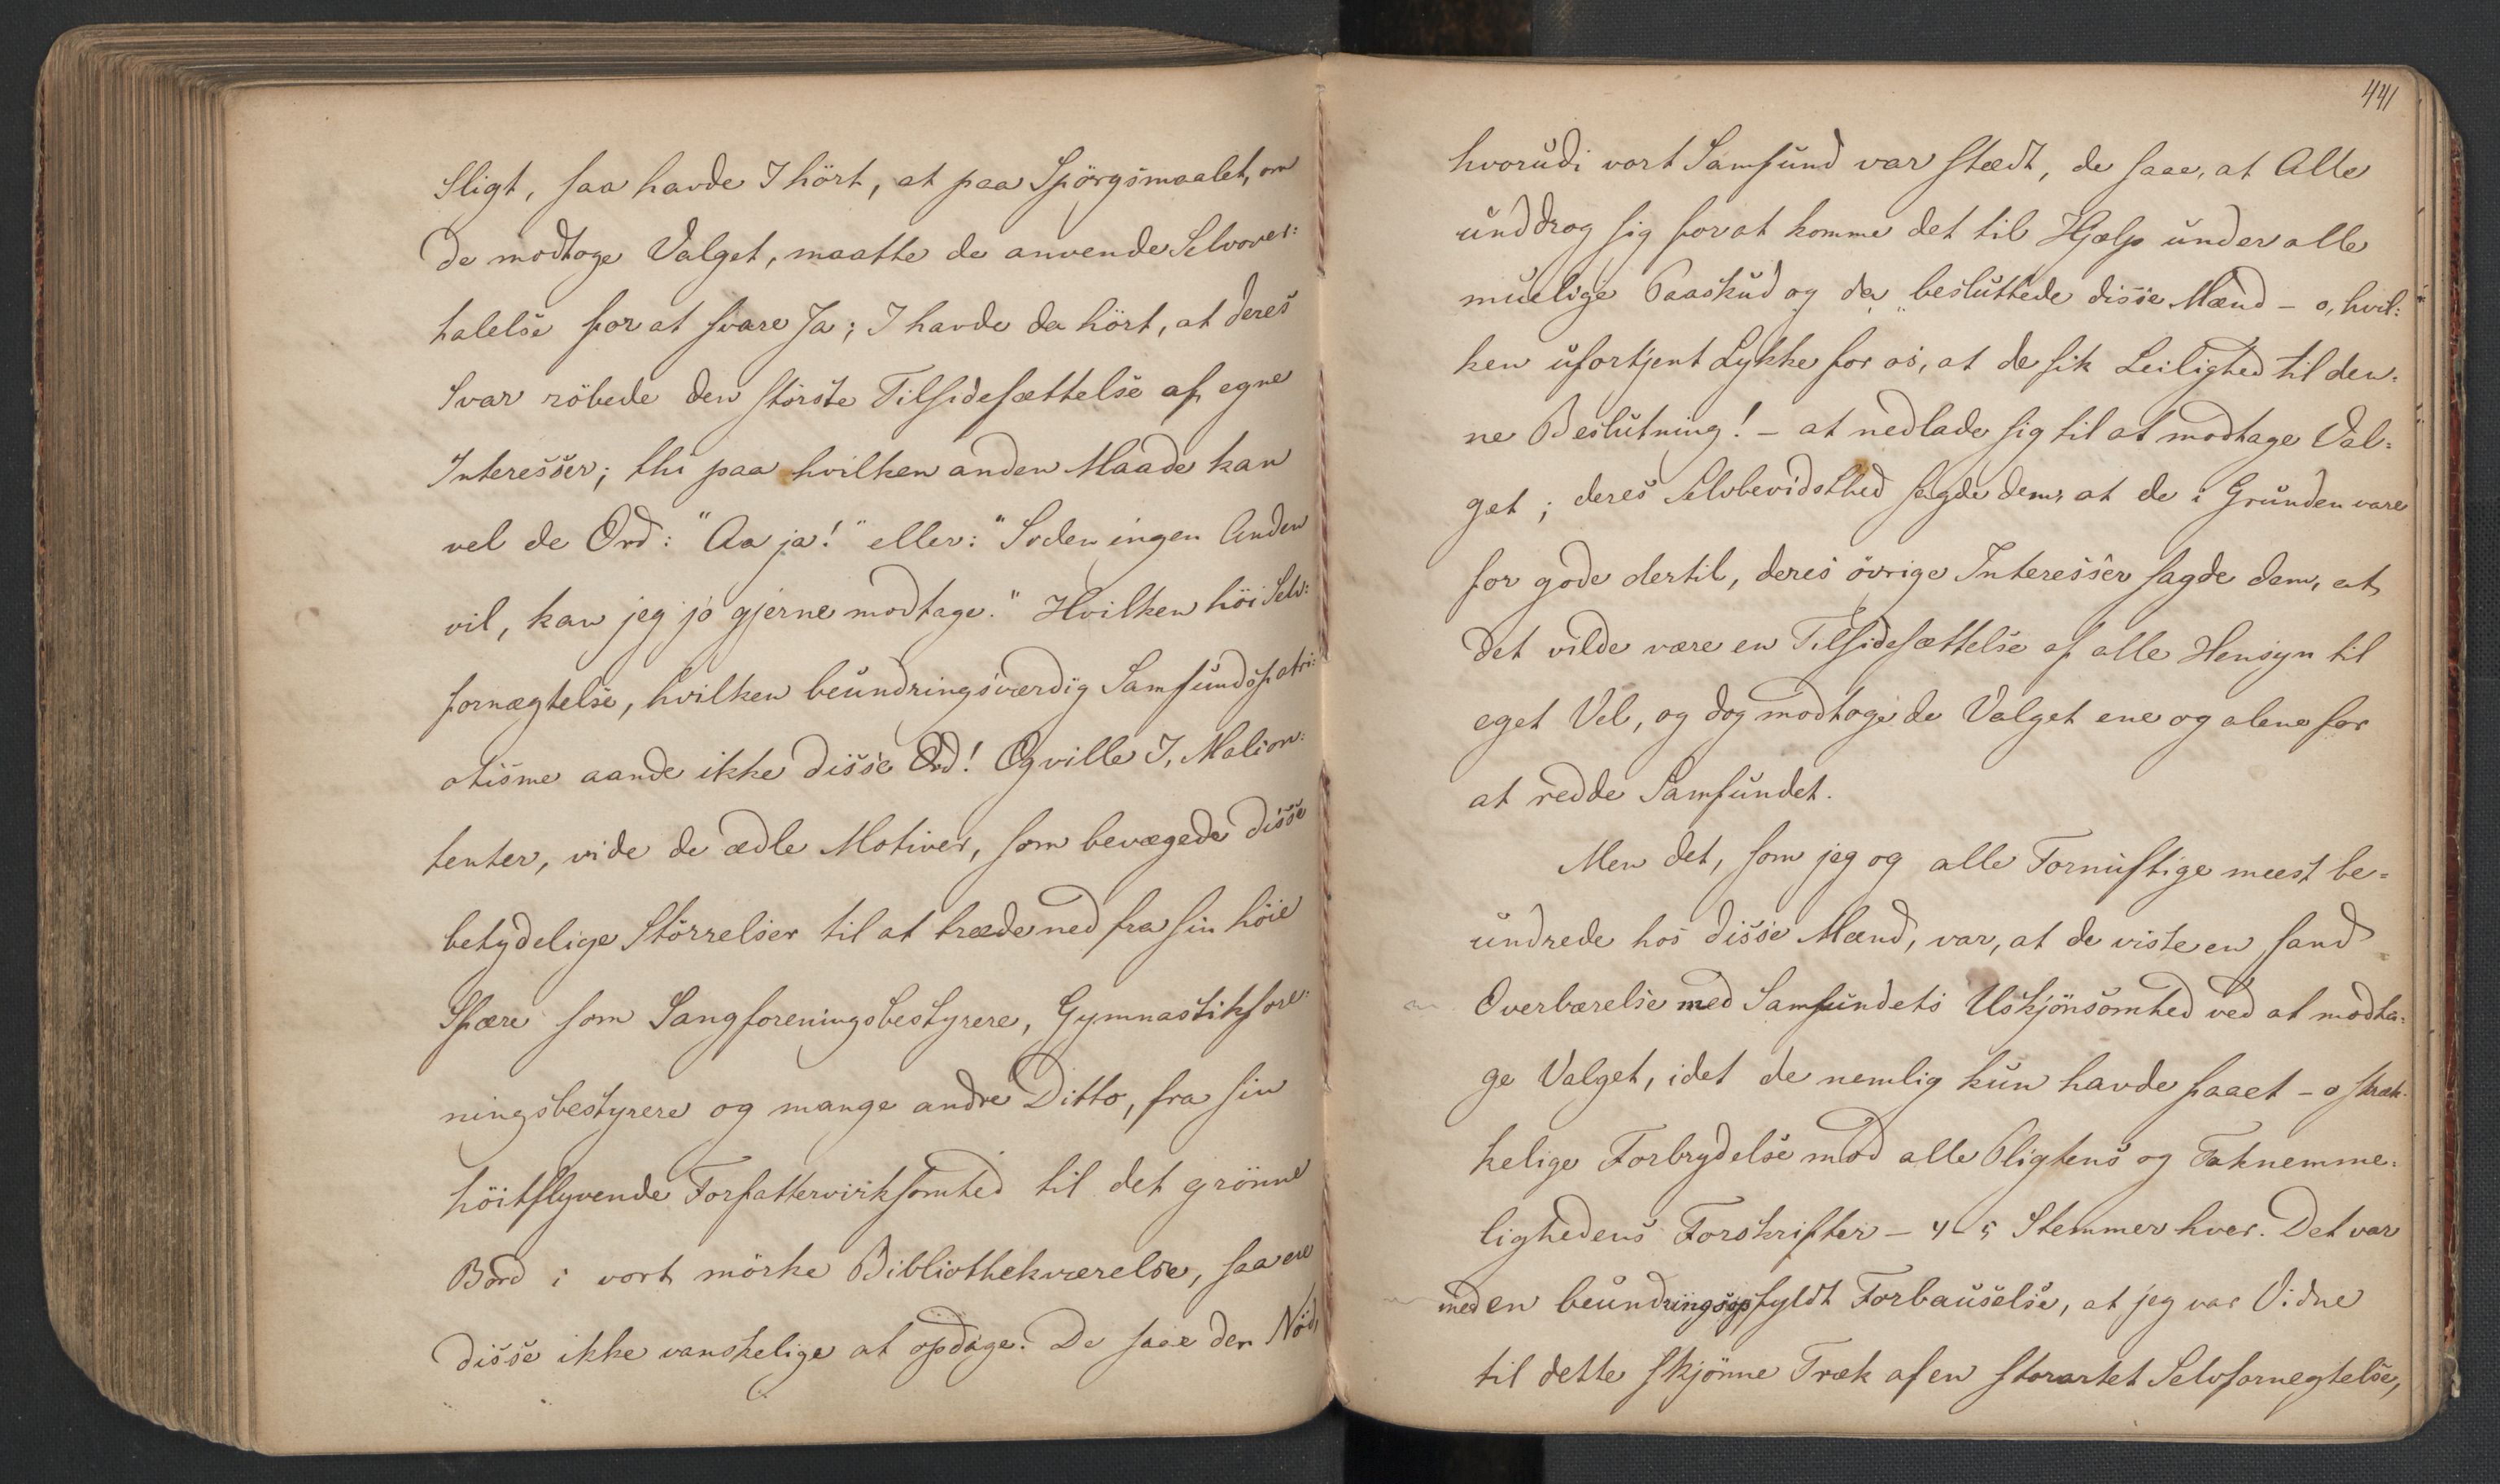 Sligt, saa havde I hört, at paa Spörgsmaalet, om
de modtoge Valget, maatte de anvende Selvover:
talelse for at svare Ja; I havde da hört, at deres
Svar röbede den störste Tilsidesættelse af egne
Interesser; thi paa hvilken anden Maade kan
vel de Ord: "Aa ja!" eller: "Siden ingen Anden
vil, kan jeg jo gjerne modtage." Hvilken höi Selv:
fornægtelse, hvilken beundringsværdig Samfundspatri:
otisme aande ikke disse Ord! Og ville I, Malcon:
tenter, vide de ædle Motiver, som bevægede disse
betydelige Störrelser til at træde ned fra sin höie
Sfære som Sangforeningsbestyrere, Gymnastikfore:
ningsbestyrere og mange andre Ditto, fra sin
höitflyvende Forfattervirksomhed til det grönne
Bord i vort mörke Bibliothekværelse, saa ere
disse ikke vanskelige at opdage. De saae den Nöd,
441
hvorudi vort Samfund var stædt, de saae, at Alle
unddrog sig for at komme det til Hjælp under alle
muelige Paaskud og da besluttede disse Mænd – o, hvil:
ken ufortjent Lykke for os, at de fik Leilighed til den:
ne Beslutning! – at nedlade sig til at modtage Val:
get; deres Selvbevidsthed sagde dem, at de i Grunden vare
for gode dertil, deres övrige Interesser sagde dem, at
det vilde være en Tilsidesættelse af alle Hensyn til
eget Vel, og dog modtoge de Valget ene og alene for
at redde Samfundet.
Men det, som jeg og alle Fornuftige meest be=
undrede hos disse Mænd, var, at de viste en sand
Overbærelse med Samfundets Uskjönsomhed ved at modta:
ge Valget, idet de nemlig kun havde faaet – o skræk:
kelige Forbrydelse mod alle Pligtens og Taknemme:
lighedens Forskrifter – 4-5 Stemmer hver. Det var
med en beundringsopfyldt Forbauselse, at jeg var Vidne
til dette skjönne Træk af en storartet Selvfornegtelse,